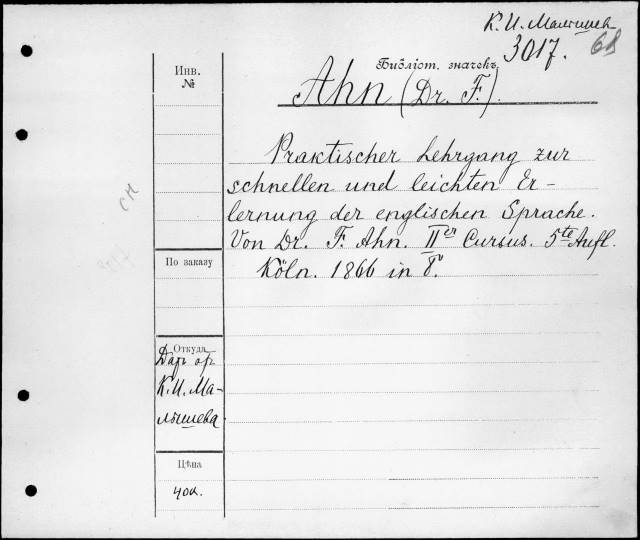 К. И. Малышев
3017. 68
Библіот. значекъ
Ahn (Dr. F.).
Инв.
№
Praktischer Lehrgang zur
schnellen und leichten Er-
lernung der englischen Sprache.
Von Dr. F. Ahn. IIer Cursus. 5te Aufl.
Köln. 1866 in 8°.
По заказу
Откуда
Даръ
К. И. Ма-
лышева.
Цѣна
40к.